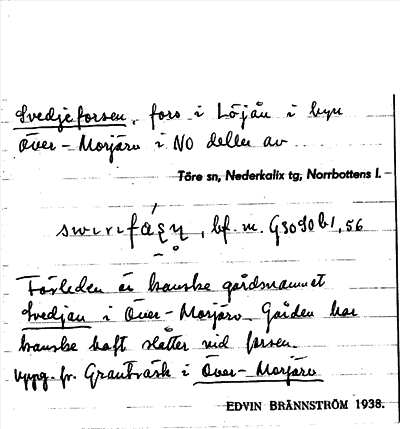 Svedjeforsen, fors i Löjån i byn
Över-Morjärv i NO delen av
Töre sn, Nederkalix tg, Norrbottens l.
bf. m.
Förleden är kanske gårdsnamnet
Svedjan i Över-Morjärv. Gården har
kanske haft slåtter vid forsen.
Uppg. fr. Granträsk i Över-Morjärv
EDVIN BRÄNNSTRÖM 1938.